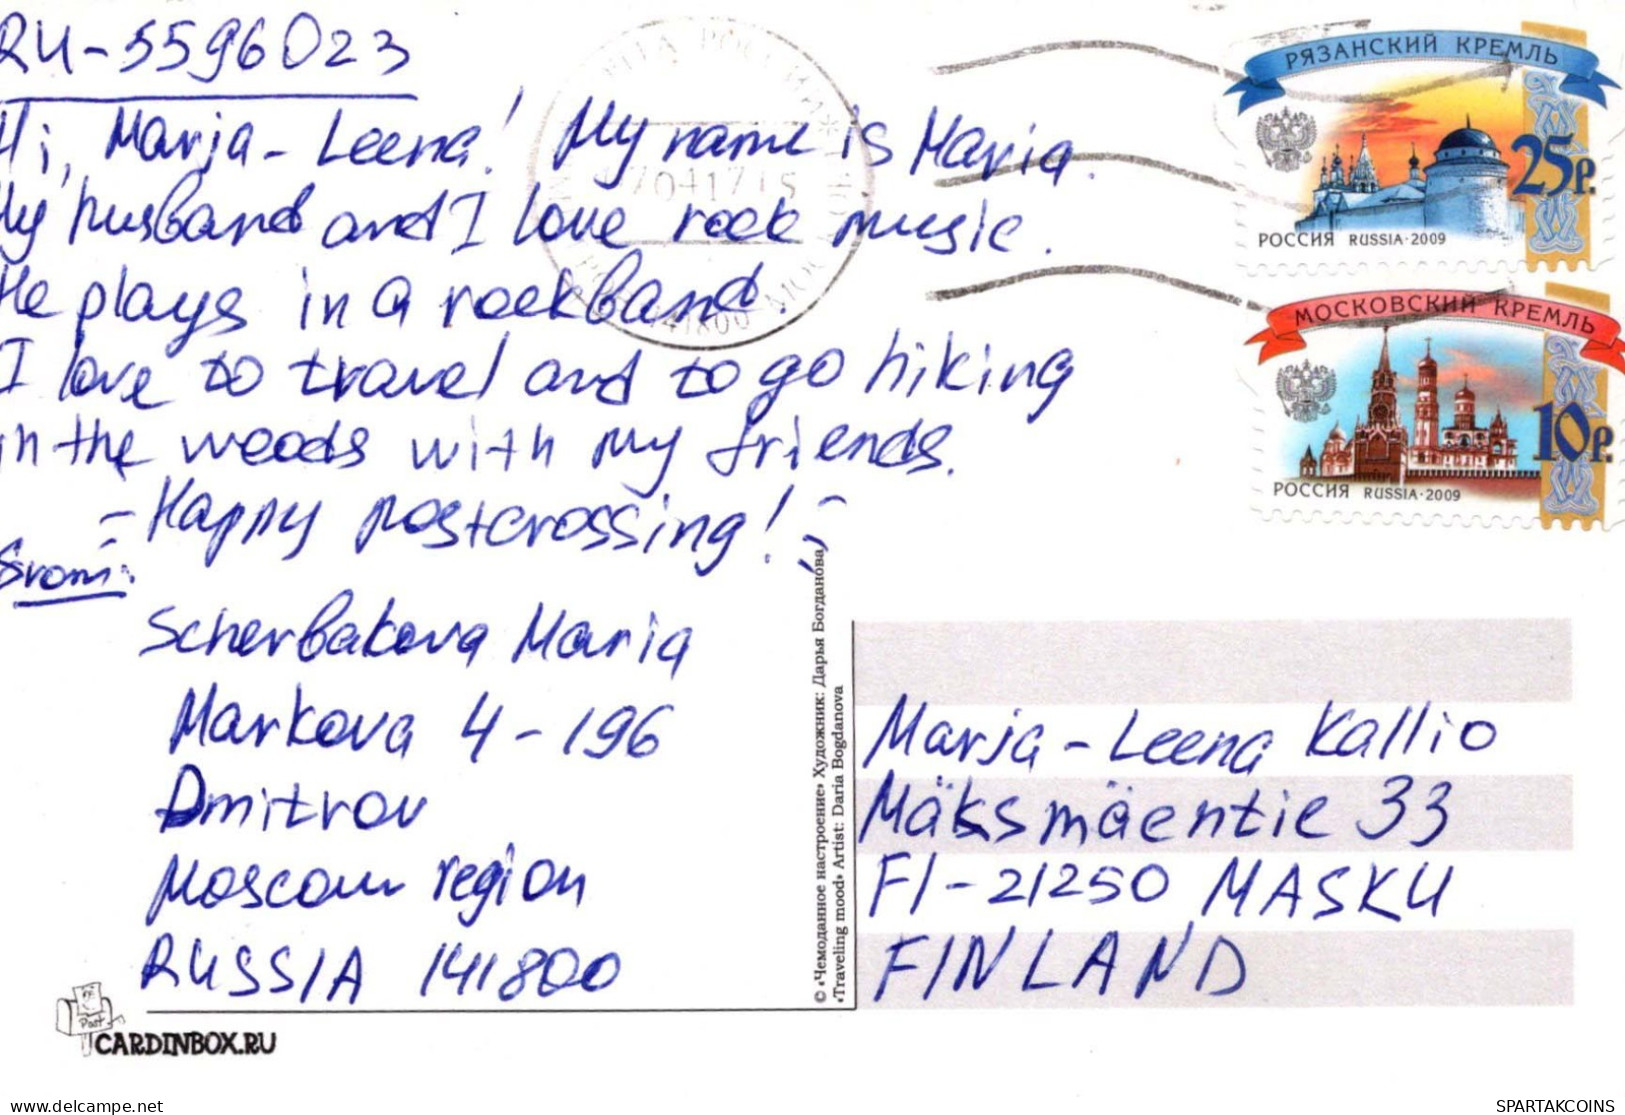 RU-5596023
Hi, Marja-Leena! My name is Maria.
My husband and I love rock music.
He plays in a rockband.
I love to travel and to go hiking
in the woods with my friends.
Happy postcrossing!
From:
Scherbakova Maria
Markova 4-196
Dmitrov
Moscow region
RUSSIA 141800
CARDINBOX.RU
© «Чемоданное настроение» Художник: Дарья Богданова
«Traveling mood» Artist: Daria Bogdanova
РЯЗАНСКИЙ КРЕМЛЬ
25р.
РОССИЯ RUSSIA·2009
МОСКОВСКИЙ КРЕМЛЬ
10р.
РОССИЯ RUSSIA·2009
Marja-Leena Kallio
Mäksmäentie 33
FI-21250 MASKU
FINLAND
Post
delcampe.net
SPARTAKCOINS